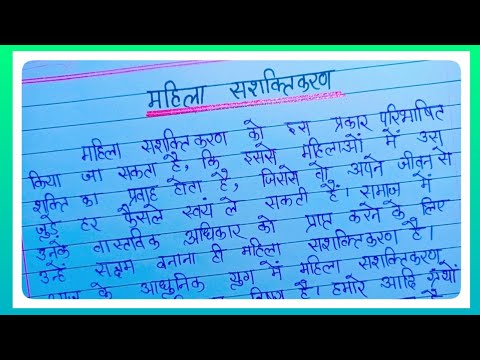 महिला सशक्तिकरण
महिला सशक्तिकरण को इस प्रकार परिभाषित
किया जा सकता है, कि इससे महिलाओं में उस
शक्ति का प्रवाह होता है, जिससे वो अपने जीवन से
जुड़े हर फैसले स्वयं ले सकती हैं। समाज में
उनके वास्तविक अधिकार को प्राप्त करने के लिए
उन्हें सक्षम बनाना ही महिला सशक्तिकरण है।
के आधुनिक युग में महिला सशक्तिकरण
विषय है। हमारे आदि ग्रंथों